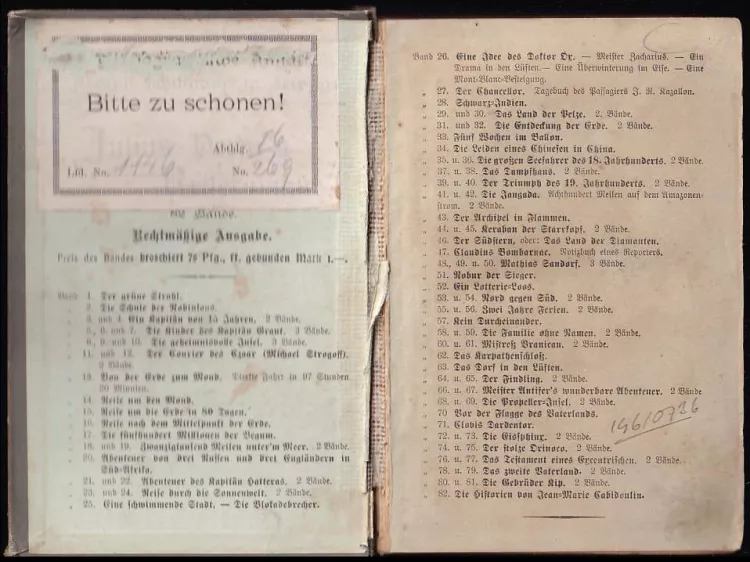 Bitte zu schonen!
Abthlg. 86
Lfd. No. 1146 No. 269
82 Bände.
Rechtmäßige Ausgabe.
Preis des Bandes broschiert 75 Pfg., ff. gebunden Mark 1.—.
Band 1. Der grüne Strahl.
„ 2. Die Schule der Robinsons.
„ 3. und 4. Ein Kapitän von 15 Jahren. 2 Bände.
„ 5., 6. und 7. Die Kinder des Kapitän Grant. 3 Bände.
„ 8., 9. und 10. Die geheimnisvolle Insel. 3 Bände.
„ 11. und 12. Der Courier des Czaar (Michael Strogoff).
2 Bände.
„ 13. Von der Erde zum Mond. Direkte Fahrt in 97 Stunden
20 Minuten.
„ 14. Reise um den Mond.
„ 15. Reise um die Erde in 80 Tagen.
„ 16. Reise nach dem Mittelpunkt der Erde.
„ 17. Die fünfhundert Millionen der Begum.
„ 18. und 19. Zwanzigtausend Meilen unter'm Meer. 2 Bände.
„ 20. Abenteuer von drei Russen und drei Engländern in
Süd-Afrika.
„ 21. und 22. Abenteuer des Kapitän Hatteras. 2 Bände.
„ 23. und 24. Reise durch die Sonnenwelt. 2 Bände.
„ 25. Eine schwimmende Stadt. — Die Blokadebrecher.
Band 26. Eine Idee des Doktor Ox. — Meister Zacharius. — Ein
Drama in den Lüften. — Eine Überwinterung im Eise. — Eine
Mont-Blanc-Besteigung.
„ 27. Der Chancellor. Tagebuch des Passagiers J. R. Kazallon.
„ 28. Schwarz-Indien.
„ 29. und 30. Das Land der Pelze. 2. Bände.
„ 31. und 32. Die Entdeckung der Erde. 2 Bände.
„ 33. Fünf Wochen im Ballon.
„ 34. Die Leiden eines Chinesen in China.
„ 35. u. 36. Die großen Seefahrer des 18. Jahrhunderts. 2 Bände.
„ 37. u. 38. Das Dampfhaus. 2 Bände.
„ 39. u. 40. Der Triumph des 19. Jahrhunderts. 2 Bände.
„ 41. u. 42. Die Jangada. Achthundert Meilen auf dem Amazonen-
strom. 2 Bände.
„ 43. Der Archipel in Flammen.
„ 44. u. 45. Keraban der Starrkopf. 2 Bände.
„ 46. Der Südstern, oder: Das Land der Diamanten.
„ 47. Claudius Bombarnac. Notizbuch eines Reporters.
„ 48., 49. u. 50. Mathias Sandorf. 3 Bände.
„ 51. Robur der Sieger.
„ 52. Ein Lotterie-Loos.
„ 53. u. 54. Nord gegen Süd. 2 Bände.
„ 55. u. 56. Zwei Jahre Ferien. 2 Bände.
„ 57. Kein Durcheinander.
„ 58. u. 59. Die Familie ohne Namen. 2 Bände.
„ 60. u. 61. Mistreß Branican. 2 Bände.
„ 62. Das Karpathenschloß.
„ 63. Das Dorf in den Lüften.
„ 64. u. 65. Der Findling. 2 Bände.
„ 66. u. 67. Meister Antifer's wunderbare Abenteuer. 2 Bände
„ 68. u. 69. Die Propeller-Insel. 2 Bände.
„ 70 Vor der Flagge des Vaterlands.
„ 71. Clovis Dardentor.
„ 72. u. 73. Die Eissphinx. 2 Bände.
„ 74. u. 75. Der stolze Orinoco. 2 Bände.
„ 76. u. 77. Das Testament eines Excentrischen. 2 Bände.
„ 78. u. 79. Das zweite Vaterland. 2 Bände.
„ 80. u. 81. Die Gebrüder Kip. 2 Bände.
„ 82. Die Historien von Jean-Marie Cabidoulin.
196/0726